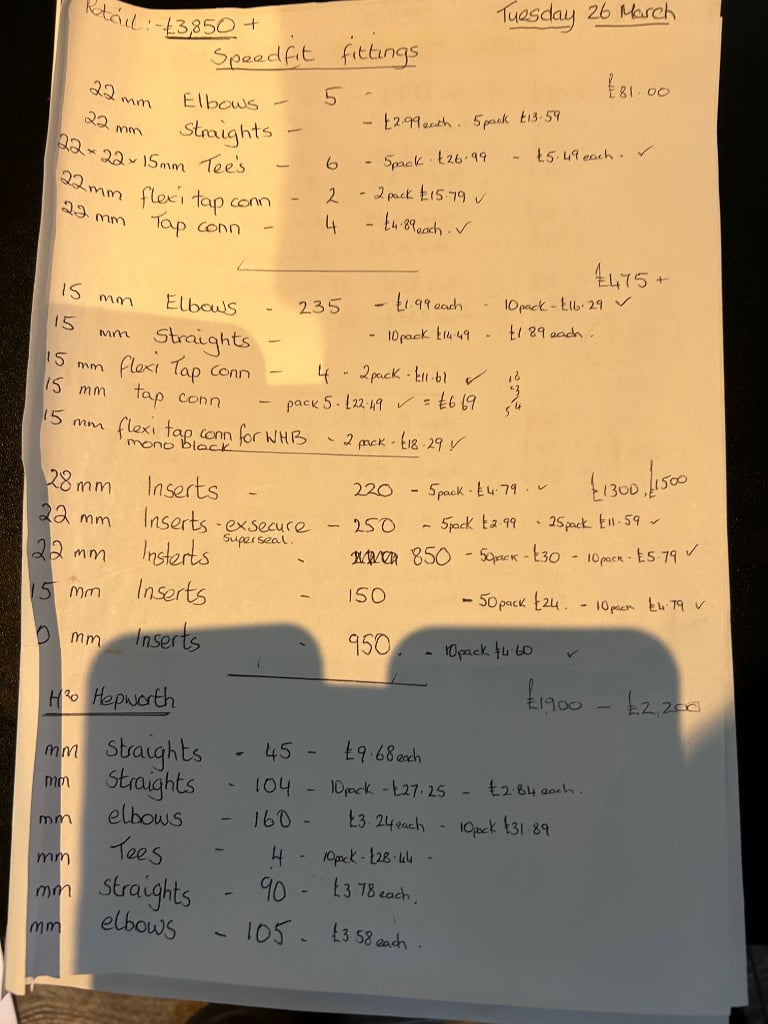 Retail :- £3,850 +
Tuesday 26 March
Speedfit fittings
22 mm Elbows - 5 - £81.00
22 mm Straights - - £2.99 each. 5pack £13.59
22 x 22 x 15mm Tee's - 6 - 5pack. £26.99 - £5.49 each. ✓
22mm flexi tap conn - 2 - 2pack £15.79 ✓
22 mm Tap conn - 4 - £4.89 each. ✓
£475 +
15 mm Elbows - 235 - £1.99 each - 10pack - £16.29 ✓
15 mm Straights - - 10pack £14.49 - £1.89 each.
15 mm flexi Tap conn - 4 - 2pack - £11.61 ✓
15 mm tap conn - pack 5 - £22.49 ✓ = £6.69
15 mm flexi tap conn for WHB - 2 pack - £18.29 ✓
mono black
28mm Inserts - 220 - 5pack - £4.79. ✓ £1300, £1500
22 mm Inserts - exsecure - 250 - 5pack £2.99 - 25pack £11.59 ✓
superseal.
22 mm Insterts - 850 - 50pack - £30 - 10pack - £5.79 ✓
15 mm Inserts - 150 - 50pack £24. - 10pack £4.79 ✓
0 mm Inserts - 950. - 10pack £4.60 ✓
H2o Hepworth
£1,900 - £2,200
mm Straights - 45 - £9.68 each
mm Straights - 104 - 10pack - £27.25 - £2.84 each.
mm elbows - 160 - £3.24 each - 10pack £31.89
mm Tees - 4 - 10pack - £28.44 -
mm straights - 90 - £3.78 each.
mm elbows - 105 - £3.58 each.